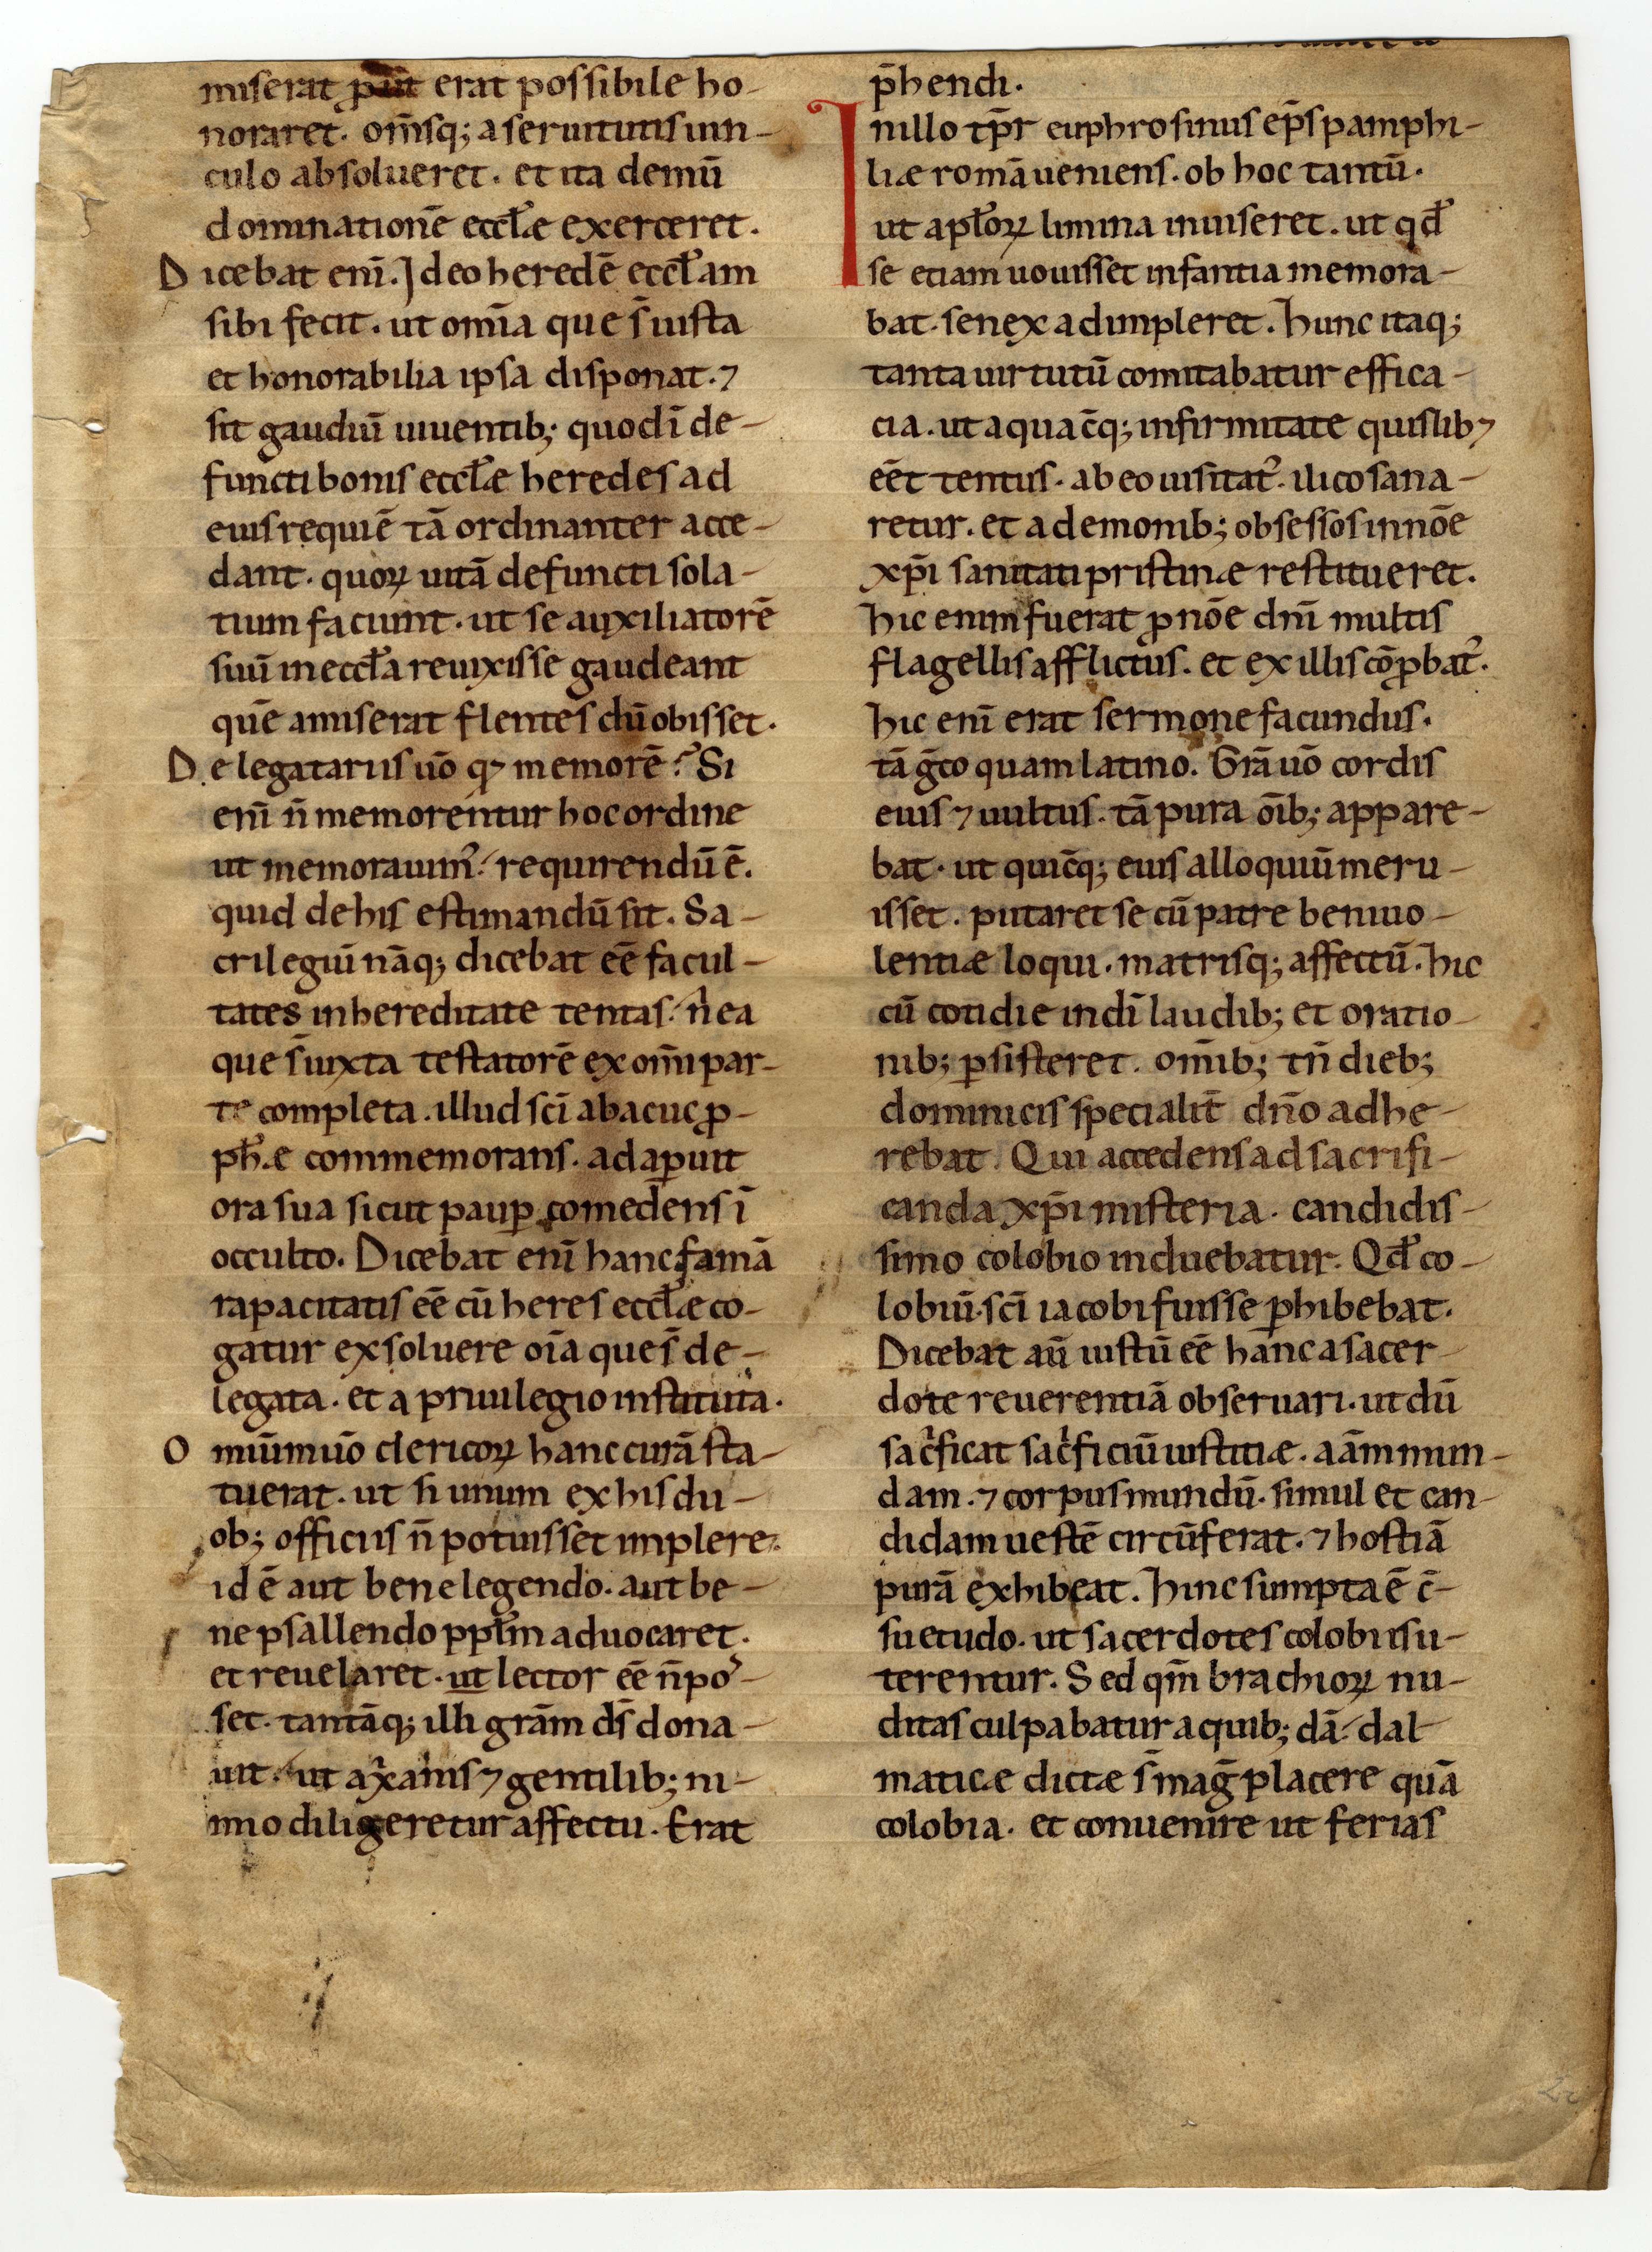 miserat ꝓut erat possibile ho-
noraret. om̅sq; a seruitutis uin-
culo absolueret. et ita demū
dominationē eccłæ exerceret.
Dicebat eni̅. Ideo heredē eccłam
sibi fecit. ut om̅ia que s̅ iusta
et honorabilia ipsa disponat. ⁊
sit gaudiū uiuentib; quod i̅ de-
functi bonis eccłæ heredes ad
eius requiē tā ordinanter acce-
dant. quoꝝ uitā defuncti sola-
tium faciunt. ut se auxiliatorē
suū in eccła reuixisse gaudeant
quē amiserat flentes dū obisset.
De legatariis uō q⁊ memorē? Si
eni̅ n̅ memorentur hoc ordine
ut memorauim᾽. requirendū ē.
quid de his estimandū sit. Sa-
crilegiū nāq; dicebat eē̅ facul-
tates in hereditate tentas. n̅ ea
que s̅ iuxta testatorē ex om̅i par-
te completa. illud sc̅i abacuc ꝓ-
ph̅æ commemorans. adaꝑuit
ora sua sicut pauꝑ comedens i̅
occulto. Dicebat eni̅ hanc famā
rapacitatis eē̅ cū heres eccłæ co-
gatur exsoluere oi̅a que s̅ de-
legata. et a priuilegio instituta.
Omiūm uō clericoꝝ hanc curā sta-
tuerat. ut si unum ex his du-
ob; officiis n̅ potuisset implere.
id ē aut bene legendo. aut be-
ne psallendo ppłm aduocaret.
et reuelaret. ut lector eē̅ n̅ po᾽-
set. tantāq; illi grām ds̅ dona-
uit. ut a x̅anis ⁊ gentilib; ni-
mio diligeretur affectu. Erat
p̅hendi.
In illo tp̅r euphrosinus ep̅s pamphi-
liæ romā ueniens. ob hoc tantū.
ut apłoꝝ limina inuiseret. ut qđ
se etiam uouisset infantia memora-
bat. senex adimpleret. Hunc itaq;
tanta uirtutū comitabatur effica-
cia. ut a quac̅q; infirmitate quislib⁊
eē̅t tentus. ab eo uisitat᾽. ilico sana-
retur. et a demonib; obsessos in nōe
xp̅i sanitati pristinæ restitueret.
Hic enim fuerat ꝓ nōe dn̅i multis
flagellis afflictus. et ex illis cō̅ꝓbat᾽.
Hic eni̅ erat sermone facundus.
tā g̅co quam latino. Grā uō cordis
eius ⁊ uultus. tā pura oi̅b; appare-
bat. ut quic̅q; eius alloquiū meru-
isset. putaret se cū patre beniuo-
lentiæ loqui. matrisq; affectū. Hic
cū cotidie in di̅ laudib; et oratio-
nib; ꝑsisteret. om̅ib; tn̅ dieb;
dominicis specialit̅ dn̅o adhe-
rebat. Qui accedens ad sacrifi-
canda xp̅i misteria. candidis-
simo colobio induebatur. Qđ co-
lobiū sc̅i iacobi fuisse ꝑhibebat.
Dicebat au̅ iustū eē̅ hanc a sacer-
dote reuerentiā obseruari. ut dū
sac᾽ficat sac᾽ficiū iustitiæ. aām mun-
dam. ⁊ corpus mundū. simul et can-
didam uestē circūferat. ⁊ hostiā
purā exhibeat. Hinc sumpta ē c̅-
suetudo. ut sacerdotes colobiis u-
terentur. Sed qm̅ brachioꝝ nu-
ditas culpabatur a quib; dā. dal-
maticæ dictæ s̅ mag̅ placere quā
colobia. et conuenire ut ferias